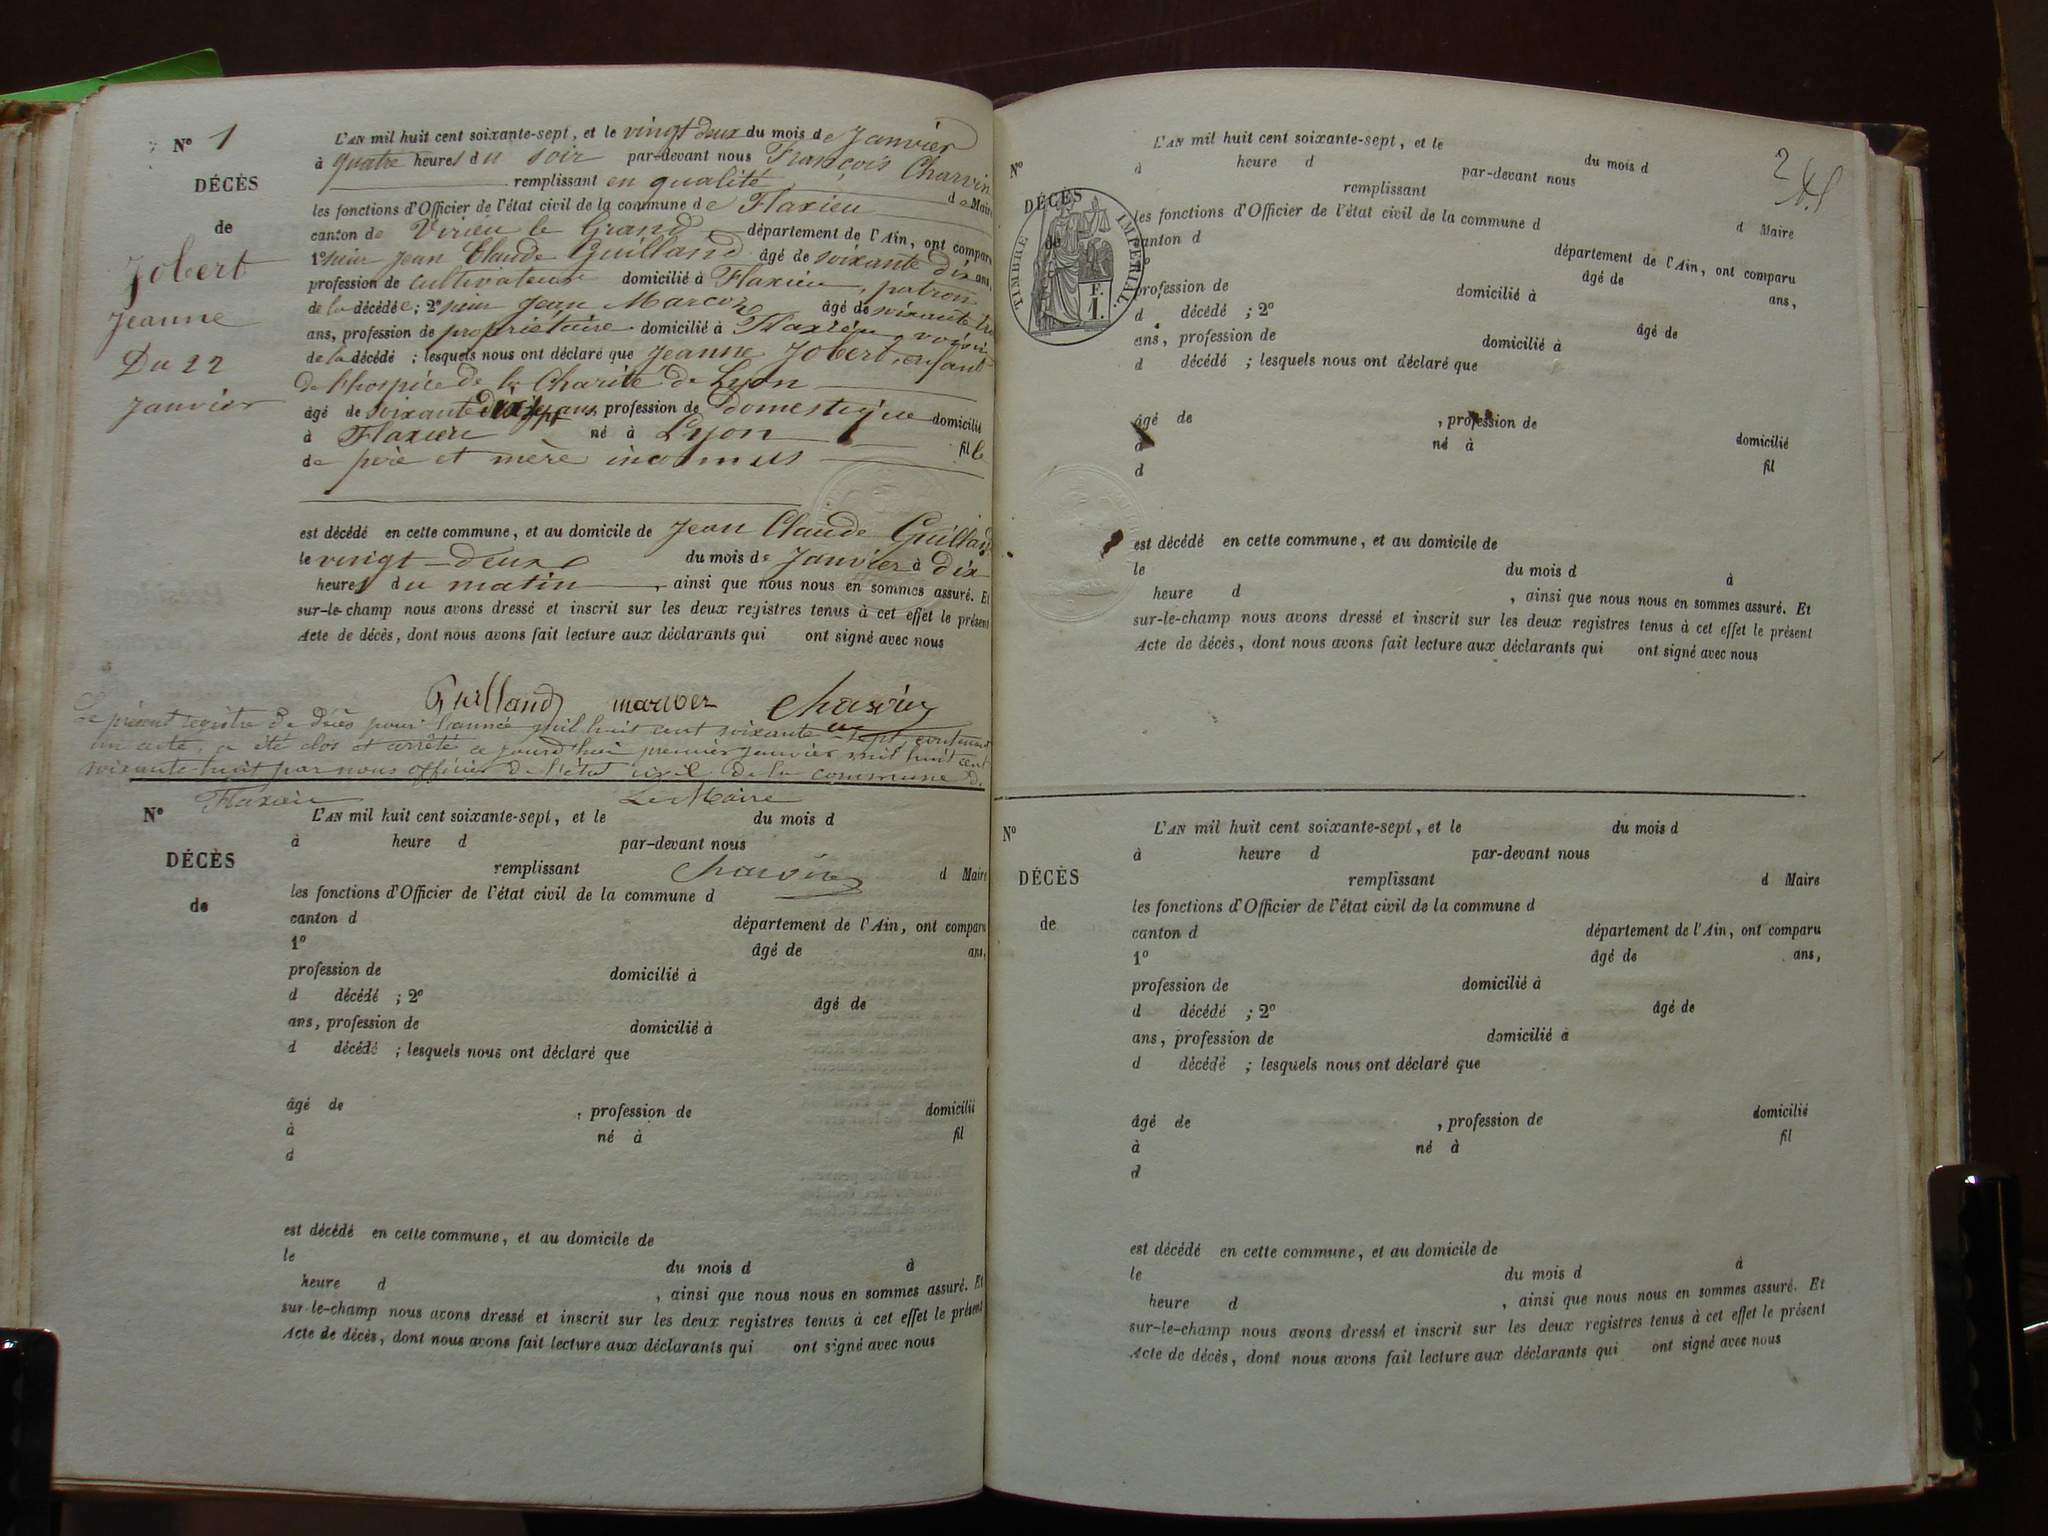 N° 1
DÉCÈS
de
Jobert
Jeanne
Du 22
Janvier
L'AN mil huit cent soixante-sept, et le vingt deux du mois de Janvier
à quatre heures du soir par-devant nous François Charvin
remplissant en qualité de Maire
les fonctions d'Officier de l'état civil de la commune de Flaxieu
canton de Virieu le Grand, département de l'Ain, ont comparu
1° sieur Jean Claude Guilland âgé de soixante dix ans,
profession de cultivateur domicilié à Flaxieu, patron
de la décédée; 2° sieur Jean Marcoz âgé de soixante
ans, profession de propriétaire domicilié à Flaxieu, voisin
de la décédé ; lesquels nous ont déclaré que Jeanne Jobert, enfant
de l'hospice de la Charité de Lyon
âgé de soixante ans, profession de domestique domicilié
à Flaxieu né à Lyon fille
de père et mère inconnus
est décédé en cette commune, et au domicile de Jean Claude Guilland
le vingt-deux du mois de Janvier à dix
heures du matin, ainsi que nous nous en sommes assuré. Et
sur-le-champ nous avons dressé et inscrit sur les deux registres tenus à cet effet le présent
Acte de décès, dont nous avons fait lecture aux déclarants qui ont signé avec nous
Guilland marcoz Charvin
Le présent registre de décès pour l'année mil huit cent soixante sept, contenant
un acte, a été clos et arrêté ce jourd'hui premier janvier mil huit cent
soixante-huit par nous officier de l'état civil de la commune de
Flaxieu Le Maire
Charvin
N°
DÉCÈS
de
L'AN mil huit cent soixante-sept, et le du mois d
à heure d par-devant nous
remplissant d Maire
les fonctions d'Officier de l'état civil de la commune d
canton d département de l'Ain, ont comparu
1° âgé de ans,
profession de domicilié à
d décédé ; 2° âgé de
ans, profession de domicilié à
d décédé ; lesquels nous ont déclaré que
âgé de , profession de domicilié
à né à fil
d
est décédé en cette commune, et au domicile de
le du mois d à
heure d , ainsi que nous nous en sommes assuré. Et
sur-le-champ nous avons dressé et inscrit sur les deux registres tenus à cet effet le présent
Acte de décès, dont nous avons fait lecture aux déclarants qui ont signé avec nous
2
N°
DÉCÈS
de
TIMBRE IMPÉRIAL.
F.
1.
L'AN mil huit cent soixante-sept, et le du mois d
à heure d par-devant nous
remplissant d Maire
les fonctions d'Officier de l'état civil de la commune d
canton d département de l'Ain, ont comparu
1° âgé de ans,
profession de domicilié à
d décédé ; 2° âgé de
ans, profession de domicilié à
d décédé ; lesquels nous ont déclaré que
âgé de , profession de domicilié
à né à fil
d
est décédé en cette commune, et au domicile de
le du mois d à
heure d , ainsi que nous nous en sommes assuré. Et
sur-le-champ nous avons dressé et inscrit sur les deux registres tenus à cet effet le présent
Acte de décès, dont nous avons fait lecture aux déclarants qui ont signé avec nous
N°
DÉCÈS
de
L'AN mil huit cent soixante-sept, et le du mois d
à heure d par-devant nous
remplissant d Maire
les fonctions d'Officier de l'état civil de la commune d
canton d département de l'Ain, ont comparu
1° âgé de ans,
profession de domicilié à
d décédé ; 2° âgé de
ans, profession de domicilié à
d décédé ; lesquels nous ont déclaré que
âgé de , profession de domicilié
à né à fil
d
est décédé en cette commune, et au domicile de
le du mois d à
heure d , ainsi que nous nous en sommes assuré. Et
sur-le-champ nous avons dressé et inscrit sur les deux registres tenus à cet effet le présent
Acte de décès, dont nous avons fait lecture aux déclarants qui ont signé avec nous